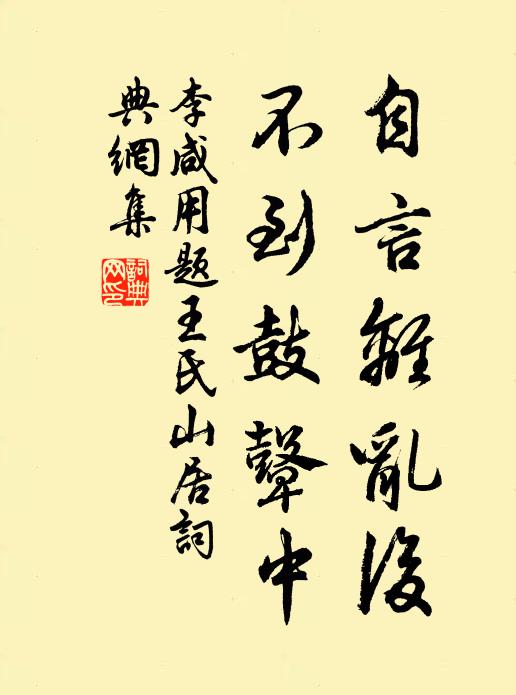 自言離亂後
不到鼓鼙中
李咸用題王氏山居詞
典網集
詞典
网印